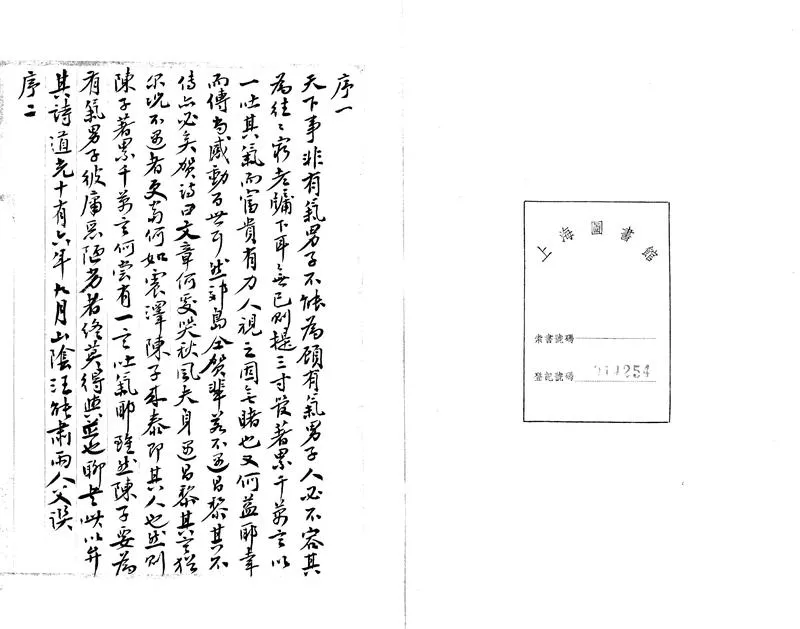 序一
天下事非有氣男子不能為顧有氣男子人必不容其
為往〻窮老牖下耳無已則提三寸管著累千萬言以
一吐其氣而富貴有力人視之固無睹也又何益耶幸
而傳尚感動百世可然郊島仝賀輩若不遇昌黎其不
傳亦必矣賀詩曰文章何處哭秋風夫身遇昌黎其言猶
尔况不遇者更當何如震澤陳子來泰即其人也然則
陳子著累千萬言何嘗有一言吐氣耶雖然陳子要為
有氣男子彼庸惡陋劣者終莫得與並也聊書此以弁
其詩道光十有六年九月山陰汪能肅雨人父譔
序二
上海圖書館
索書號碼
登記號碼 014254